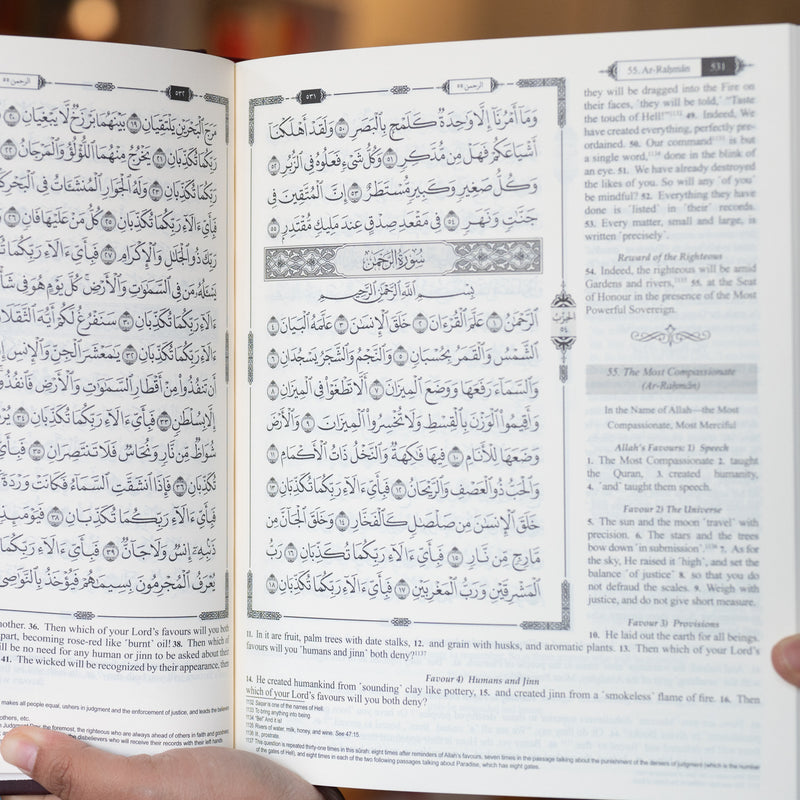 55. Ar-Raḥmân 531
الرحمن ٥٥
٥٣١
وَمَآ أَمْرُنَآ إِلَّا وَٰحِدَةٌ كَلَمْحٍۭ بِٱلْبَصَرِ ٥٠ وَلَقَدْ أَهْلَكْنَآ
أَشْيَاعَكُمْ فَهَلْ مِن مُّدَّكِرٍ ٥١ وَكُلُّ شَىْءٍ فَعَلُوهُ فِى ٱلزُّبُرِ ٥٢
وَكُلُّ صَغِيرٍ وَكَبِيرٍ مُّسْتَطَرٌ ٥٣ إِنَّ ٱلْمُتَّقِينَ فِى
جَنَّٰتٍ وَنَهَرٍ ٥٤ فِى مَقْعَدِ صِدْقٍ عِندَ مَلِيكٍ مُّقْتَدِرٍۭ ٥٥
سُورَةُ الرَّحْمَٰن
بِسْمِ ٱللَّهِ ٱلرَّحْمَٰنِ ٱلرَّحِيمِ
ٱلرَّحْمَٰنُ ١ عَلَّمَ ٱلْقُرْءَانَ ٢ خَلَقَ ٱلْإِنسَٰنَ ٣ عَلَّمَهُ ٱلْبَيَانَ ٤
ٱلشَّمْسُ وَٱلْقَمَرُ بِحُسْبَانٍ ٥ وَٱلنَّجْمُ وَٱلشَّجَرُ يَسْجُدَانِ ٦
وَٱلسَّمَآءَ رَفَعَهَا وَوَضَعَ ٱلْمِيزَانَ ٧ أَلَّا تَطْغَوْا۟ فِى ٱلْمِيزَانِ ٨
وَأَقِيمُوا۟ ٱلْوَزْنَ بِٱلْقِسْطِ وَلَا تُخْسِرُوا۟ ٱلْمِيزَانَ ٩ وَٱلْأَرْضَ
وَضَعَهَا لِلْأَنَامِ ١٠ فِيهَا فَٰكِهَةٌ وَٱلنَّخْلُ ذَاتُ ٱلْأَكْمَامِ ١١
وَٱلْحَبُّ ذُو ٱلْعَصْفِ وَٱلرَّيْحَانُ ١٢ فَبِأَىِّ ءَالَآءِ رَبِّكُمَا تُكَذِّبَانِ ١٣
خَلَقَ ٱلْإِنسَٰنَ مِن صَلْصَٰلٍ كَٱلْفَخَّارِ ١٤ وَخَلَقَ ٱلْجَآنَّ مِن
مَّارِجٍ مِّن نَّارٍ ١٥ فَبِأَىِّ ءَالَآءِ رَبِّكُمَا تُكَذِّبَانِ ١٦ رَبُّ
ٱلْمَشْرِقَيْنِ وَرَبُّ ٱلْمَغْرِبَيْنِ ١٧ فَبِأَىِّ ءَالَآءِ رَبِّكُمَا تُكَذِّبَانِ ١٨
الحزب
٥٤
they will be dragged into the Fire on
their faces, ˹they will be told,˺ “Taste
the touch of Hell!” 49. Indeed, We
have created everything, perfectly pre-
ordained. 50. Our command is but
a single word, done in the blink of
an eye. 51. We have already destroyed
the likes of you. So will any ˹of you˺
be mindful? 52. Everything they have
done is ˹listed˺ in ˹their˺ records.
53. Every matter, small and large, is
written ˹precisely˺.
Reward of the Righteous
54. Indeed, the righteous will be amid
Gardens and rivers, 55. at the Seat
of Honour in the presence of the Most
Powerful Sovereign.
55. The Most Compassionate
(Ar-Raḥmân)
In the Name of Allah—the Most
Compassionate, Most Merciful
Allah’s Favours: 1) Speech
1. The Most Compassionate 2. taught
the Quran, 3. created humanity,
4. ˹and˺ taught them speech.
Favour 2) The Universe
5. The sun and the moon ˹travel˺ with
precision. 6. The stars and the trees
bow down ˹in submission˺. 7. As for
the sky, He raised it ˹high˺, and set the
balance ˹of justice˺ 8. so that you do
not defraud the scales. 9. Weigh with
justice, and do not give short measure.
Favour 3) Provisions
10. He laid out the earth for all beings.
11. In it are fruit, palm trees with date stalks, 12. and grain with husks, and aromatic plants. 13. Then which of your Lord’s
favours will you ˹humans and jinn˺ both deny?¹¹³⁷
Favour 4) Humans and Jinn
14. He created humankind from ˹sounding˺ clay like pottery, 15. and created jinn from a ˹smokeless˺ flame of fire. 16. Then
which of your Lord’s favours will you both deny?
1132 Saqar is one of the names of Hell.
1133 To bring anything into being.
1134 “Be!” And it is!
1135 Rivers of water, milk, honey, and wine. See 47:15.
1136 lit., prostrate.
1137 This question is repeated thirty-one times in this sûrah: eight times after reminders of Allah’s favours, seven times in the passage talking about the punishment of the deniers of judgment (which is the number
of the gates of Hell), and eight times in each of the two following passages talking about Paradise, which has eight gates.
٥٣٢
الرحمن ٥٥
مَرَجَ ٱلْبَحْرَيْنِ يَلْتَقِيَانِ ١٩ بَيْنَهُمَا بَرْزَخٌ لَّا يَبْغِيَانِ ٢٠
رَبِّكُمَا تُكَذِّبَانِ ٢١ يَخْرُجُ مِنْهُمَا ٱللُّؤْلُؤُ وَٱلْمَرْجَانُ ٢٢
رَبِّكُمَا تُكَذِّبَانِ ٢٣ وَلَهُ ٱلْجَوَارِ ٱلْمُنشَـَٔاتُ فِى ٱلْبَحْرِ
فَبِأَىِّ ءَالَآءِ رَبِّكُمَا تُكَذِّبَانِ ٢٥ كُلُّ مَنْ عَلَيْهَا فَانٍ ٢٦
رَبِّكَ ذُو ٱلْجَلَٰلِ وَٱلْإِكْرَامِ ٢٧ فَبِأَىِّ ءَالَآءِ رَبِّكُمَا
يَسْـَٔلُهُۥ مَن فِى ٱلسَّمَٰوَٰتِ وَٱلْأَرْضِ كُلَّ يَوْمٍ هُوَ فِى
ءَالَآءِ رَبِّكُمَا تُكَذِّبَانِ ٣٠ سَنَفْرُغُ لَكُمْ أَيُّهَ ٱلثَّقَلَانِ
ءَالَآءِ رَبِّكُمَا تُكَذِّبَانِ ٣٢ يَٰمَعْشَرَ ٱلْجِنِّ وَٱلْإِنسِ
أَن تَنفُذُوا۟ مِنْ أَقْطَارِ ٱلسَّمَٰوَٰتِ وَٱلْأَرْضِ فَٱنفُذُوا۟
إِلَّا بِسُلْطَٰنٍ ٣٣ فَبِأَىِّ ءَالَآءِ رَبِّكُمَا تُكَذِّبَانِ ٣٤
شُوَاظٌ مِّن نَّارٍ وَنُحَاسٌ فَلَا تَنتَصِرَانِ ٣٥ فَبِأَىِّ
تُكَذِّبَانِ ٣٦ فَإِذَا ٱنشَقَّتِ ٱلسَّمَآءُ فَكَانَتْ وَرْدَةً
فَبِأَىِّ ءَالَآءِ رَبِّكُمَا تُكَذِّبَانِ ٣٨
ذَنۢبِهِۦٓ إِنسٌ وَلَا جَآنٌّ ٣٩ فَبِأَىِّ ءَالَآءِ رَبِّكُمَا
يُعْرَفُ ٱلْمُجْرِمُونَ بِسِيمَٰهُمْ فَيُؤْخَذُ بِٱلنَّوَٰصِى
nother. 36. Then which of your Lord’s favours will you both
part, becoming rose-red like ˹burnt˺ oil! 38. Then which of
ll be no need for any human or jinn to be asked about their
41. The wicked will be recognized by their appearance, then
makes all people equal, ushers in judgment and the enforcement of justice, and leads the believers
others, etc.
Judgment Day: the foremost, the righteous who are always ahead of others in faith and goodness
the disbelievers who will receive their records with their left hands.